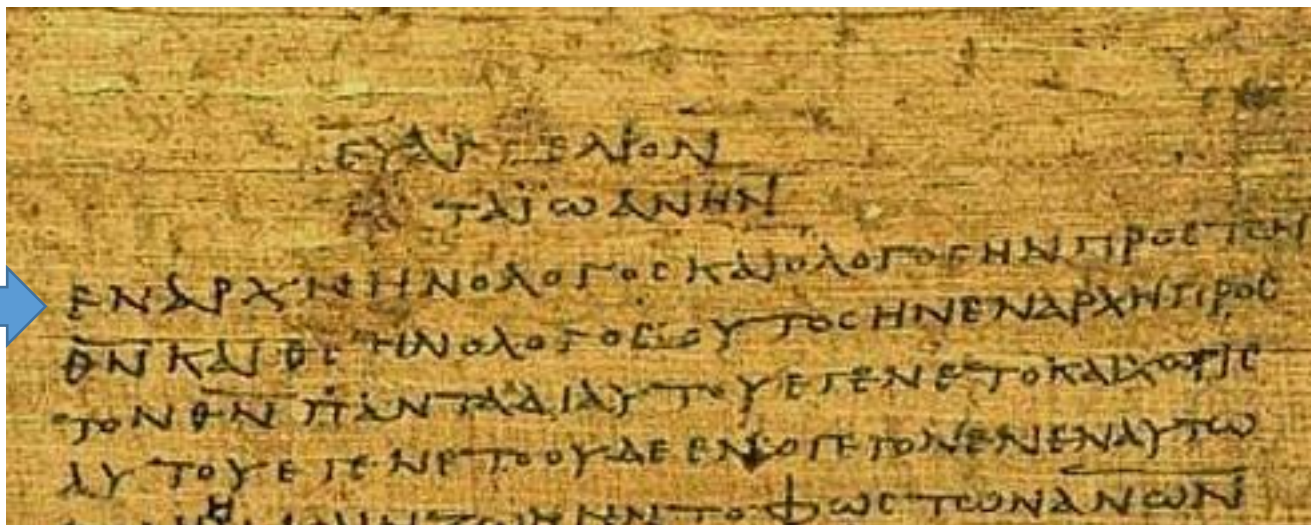 ΕΥΑΓΓΕΛΙΟΝ
ΚΑΤΑ ΪΩΑΝΗΝ
ΕΝΑΡΧΗΗΝΟΛΟΓΟϹΚΑΙΟΛΟΓΟϹΗΝΠΡΟϹΤΟΝ
Θ̅Ν̅ΚΑΙΘ̅Ϲ̅ΗΝΟΛΟΓΟϹ·ΟΥΤΟϹΗΝΕΝΑΡΧΗΠΡΟϹ
ΤΟΝΘ̅Ν̅ΠΑΝΤΑΔΙΑΥΤΟΥΕΓΕΝΕΤΟΚΑΙΧΩΡΙϹ
ΑΥΤΟΥΕΓΕΝΕΤΟΟΥΔΕΕΝΟΓΕΓΟΝΕΝΕΝΑΥΤΩ
ΗΝΤΟΦΩϹΤΩΝΑ̅Ν̅Ω̅Ν̅